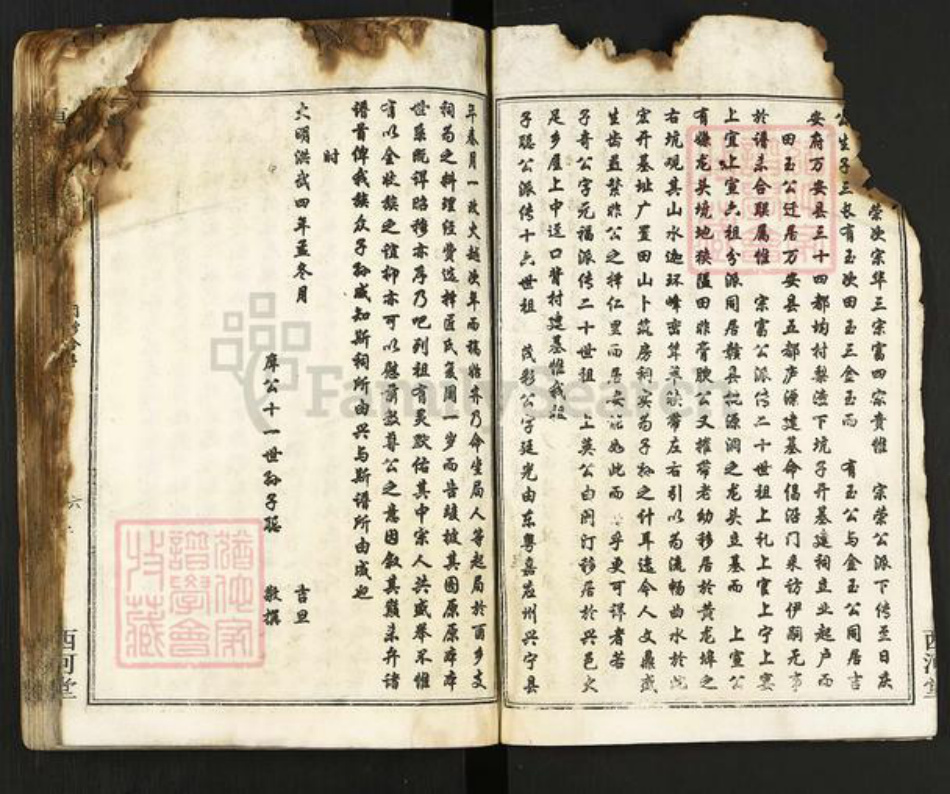 荣次宗华三宗富四宗贵惟 宗荣公派下传至日庆
公生子三长有玉次田玉三金玉而 有玉公与金玉公同居吉
安府万安县三十四都均村黎渡下坑子开基建祠立业起户而
田玉公迁居万安县五都庐源建基命倡沿门来访伊嗣无事
於谱未合联属惟 宗富公派传二十世祖上礼上官上宁上宴
上宜上宣六祖分派同居赣县桃源洞之龙头立基而 上宣公
有嫌龙头境地狭隘田非膏腴公又携带老幼移居於黄龙埠之
右坑观其山水迤环峰密耸 带左右引以为流畅曲水於
宏开基址广置田山卜筑房祠实为子孙之什耳迄今人文鼎盛
生齿益繁非公之择仁里而居安能如此而 乎更可谓者若
子奇公字元福派传二十世祖 上英公由闽汀移居於兴邑文
足乡屋上中迳口背村建基惟我祖
子聪公派传十六世祖 茂彩公字廷光由东粤嘉应州兴宁县
年春月一改火越次年而稿始齐乃命坐局人等起局於酉乡支
祠为之料理经费选择匠氏复周一岁而告竣披其图原原本本
世系既谓昭穆亦序乃吧列祖有灵默佑其中宗人共盛举不惟
有以全收族之谊抑亦可以慰前敬尊公之意因叙其颠末弁诸
谱首俾我族众子孙咸知斯祠所由兴与斯谱所由成也
时
大明洪武四年孟冬月 吉旦
庠公十一世孙子聪 敬撰
六
西河堂
西河堂
犹他家
谱学会
收藏
FamilySearch